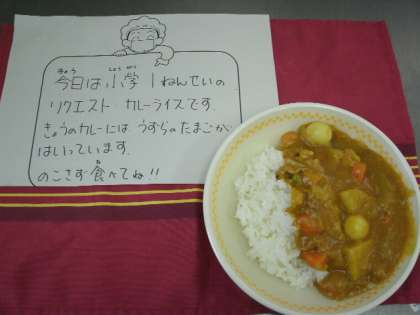 今日は小学1ねんせいの
リクエスト カレーライスです。
きょうのカレーには うずらのたまごが
はいっています。
のこさず食べてね!!